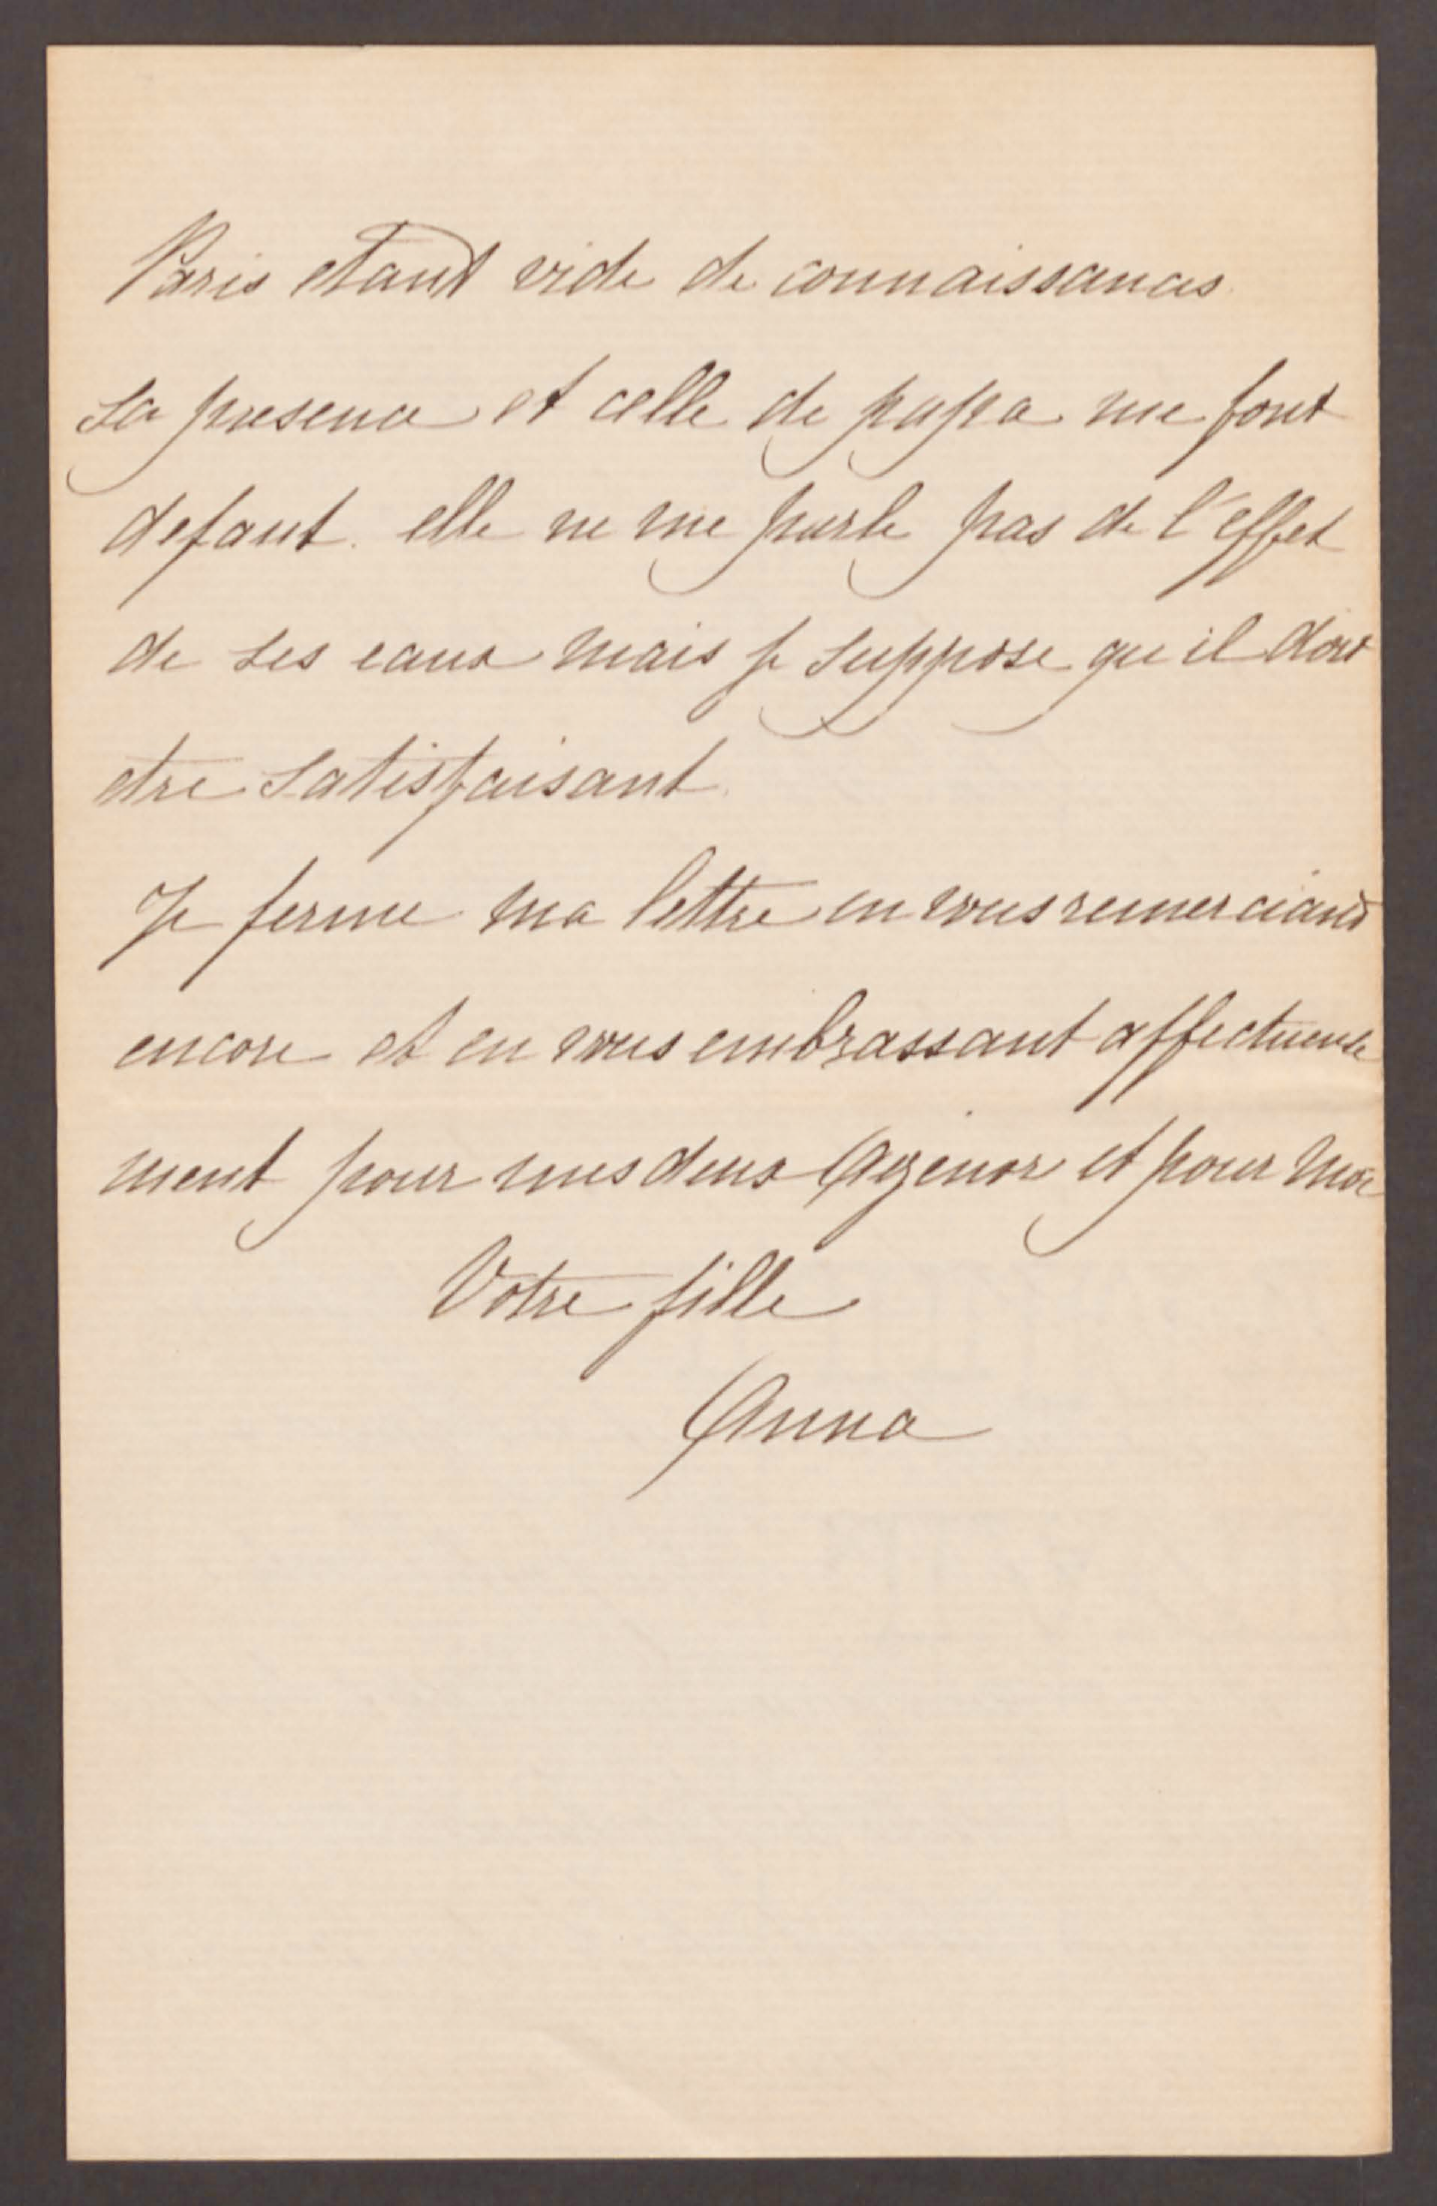 Paris etant vide de connaissances
sa presence et celle de papa me font
defaut. elle ne me parle pas de l'effet
de ses eaux mais je suppose qu il doit
etre satisfaisant.
Je ferme ma lettre en vous remerciant
encore et en vous embrassant affectueuse
ment pour nous deux Agenor et pour moi
Votre fille
Anna